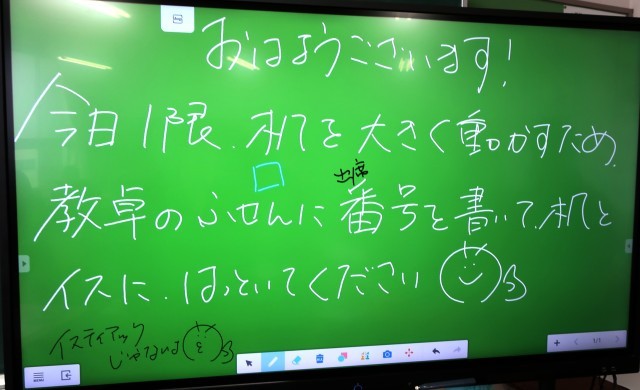 おはようございます!
今日1限、机を大きく動かすため、
出席
教卓のふせんに番号を書いて、机と
イスに、はっといてください
イスティアック
じゃないよ
1/1